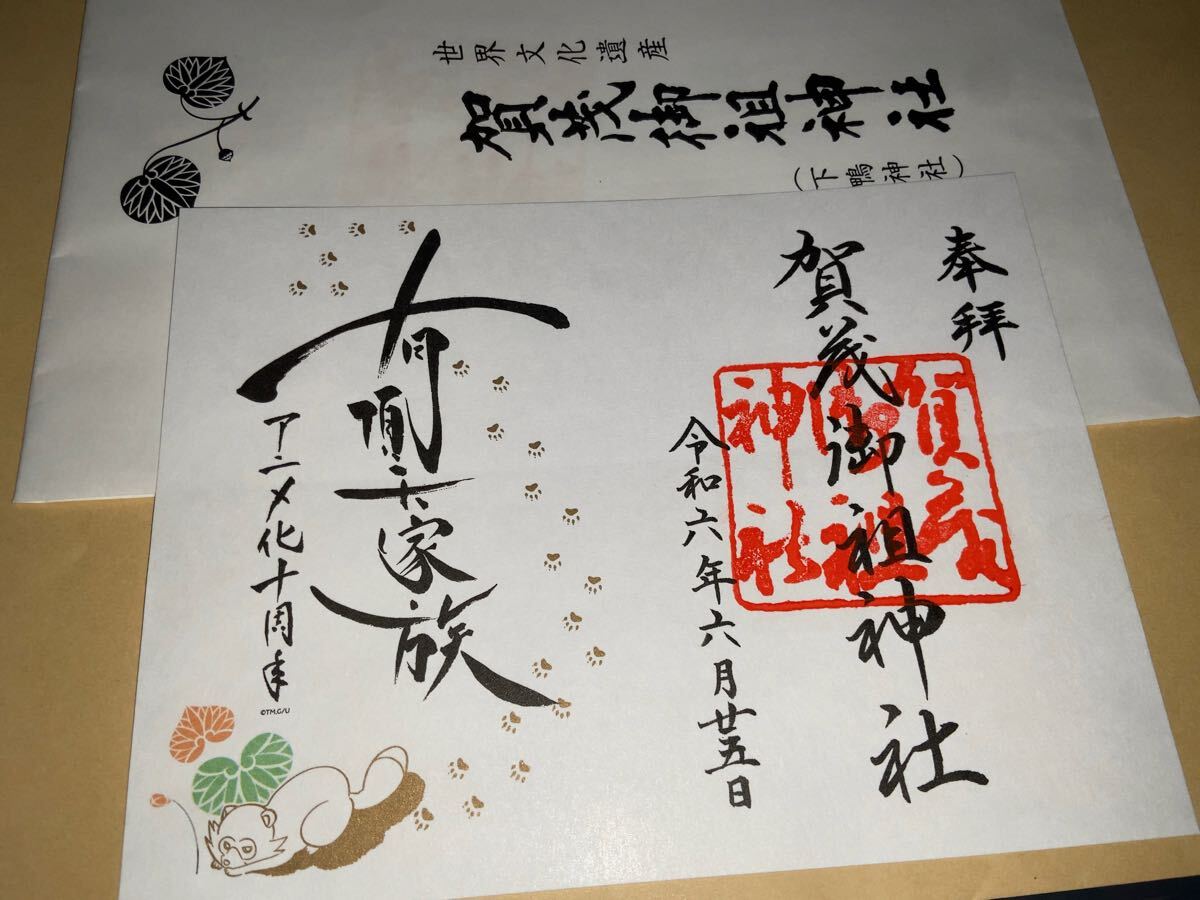 世界文化遺産
賀茂御祖神社
(下鴨神社)
奉拝
賀茂御祖神社
賀茂
御祖
神社
令和六年六月廿五日
有頂天家族
アニメ化十周年
©TM.G/U